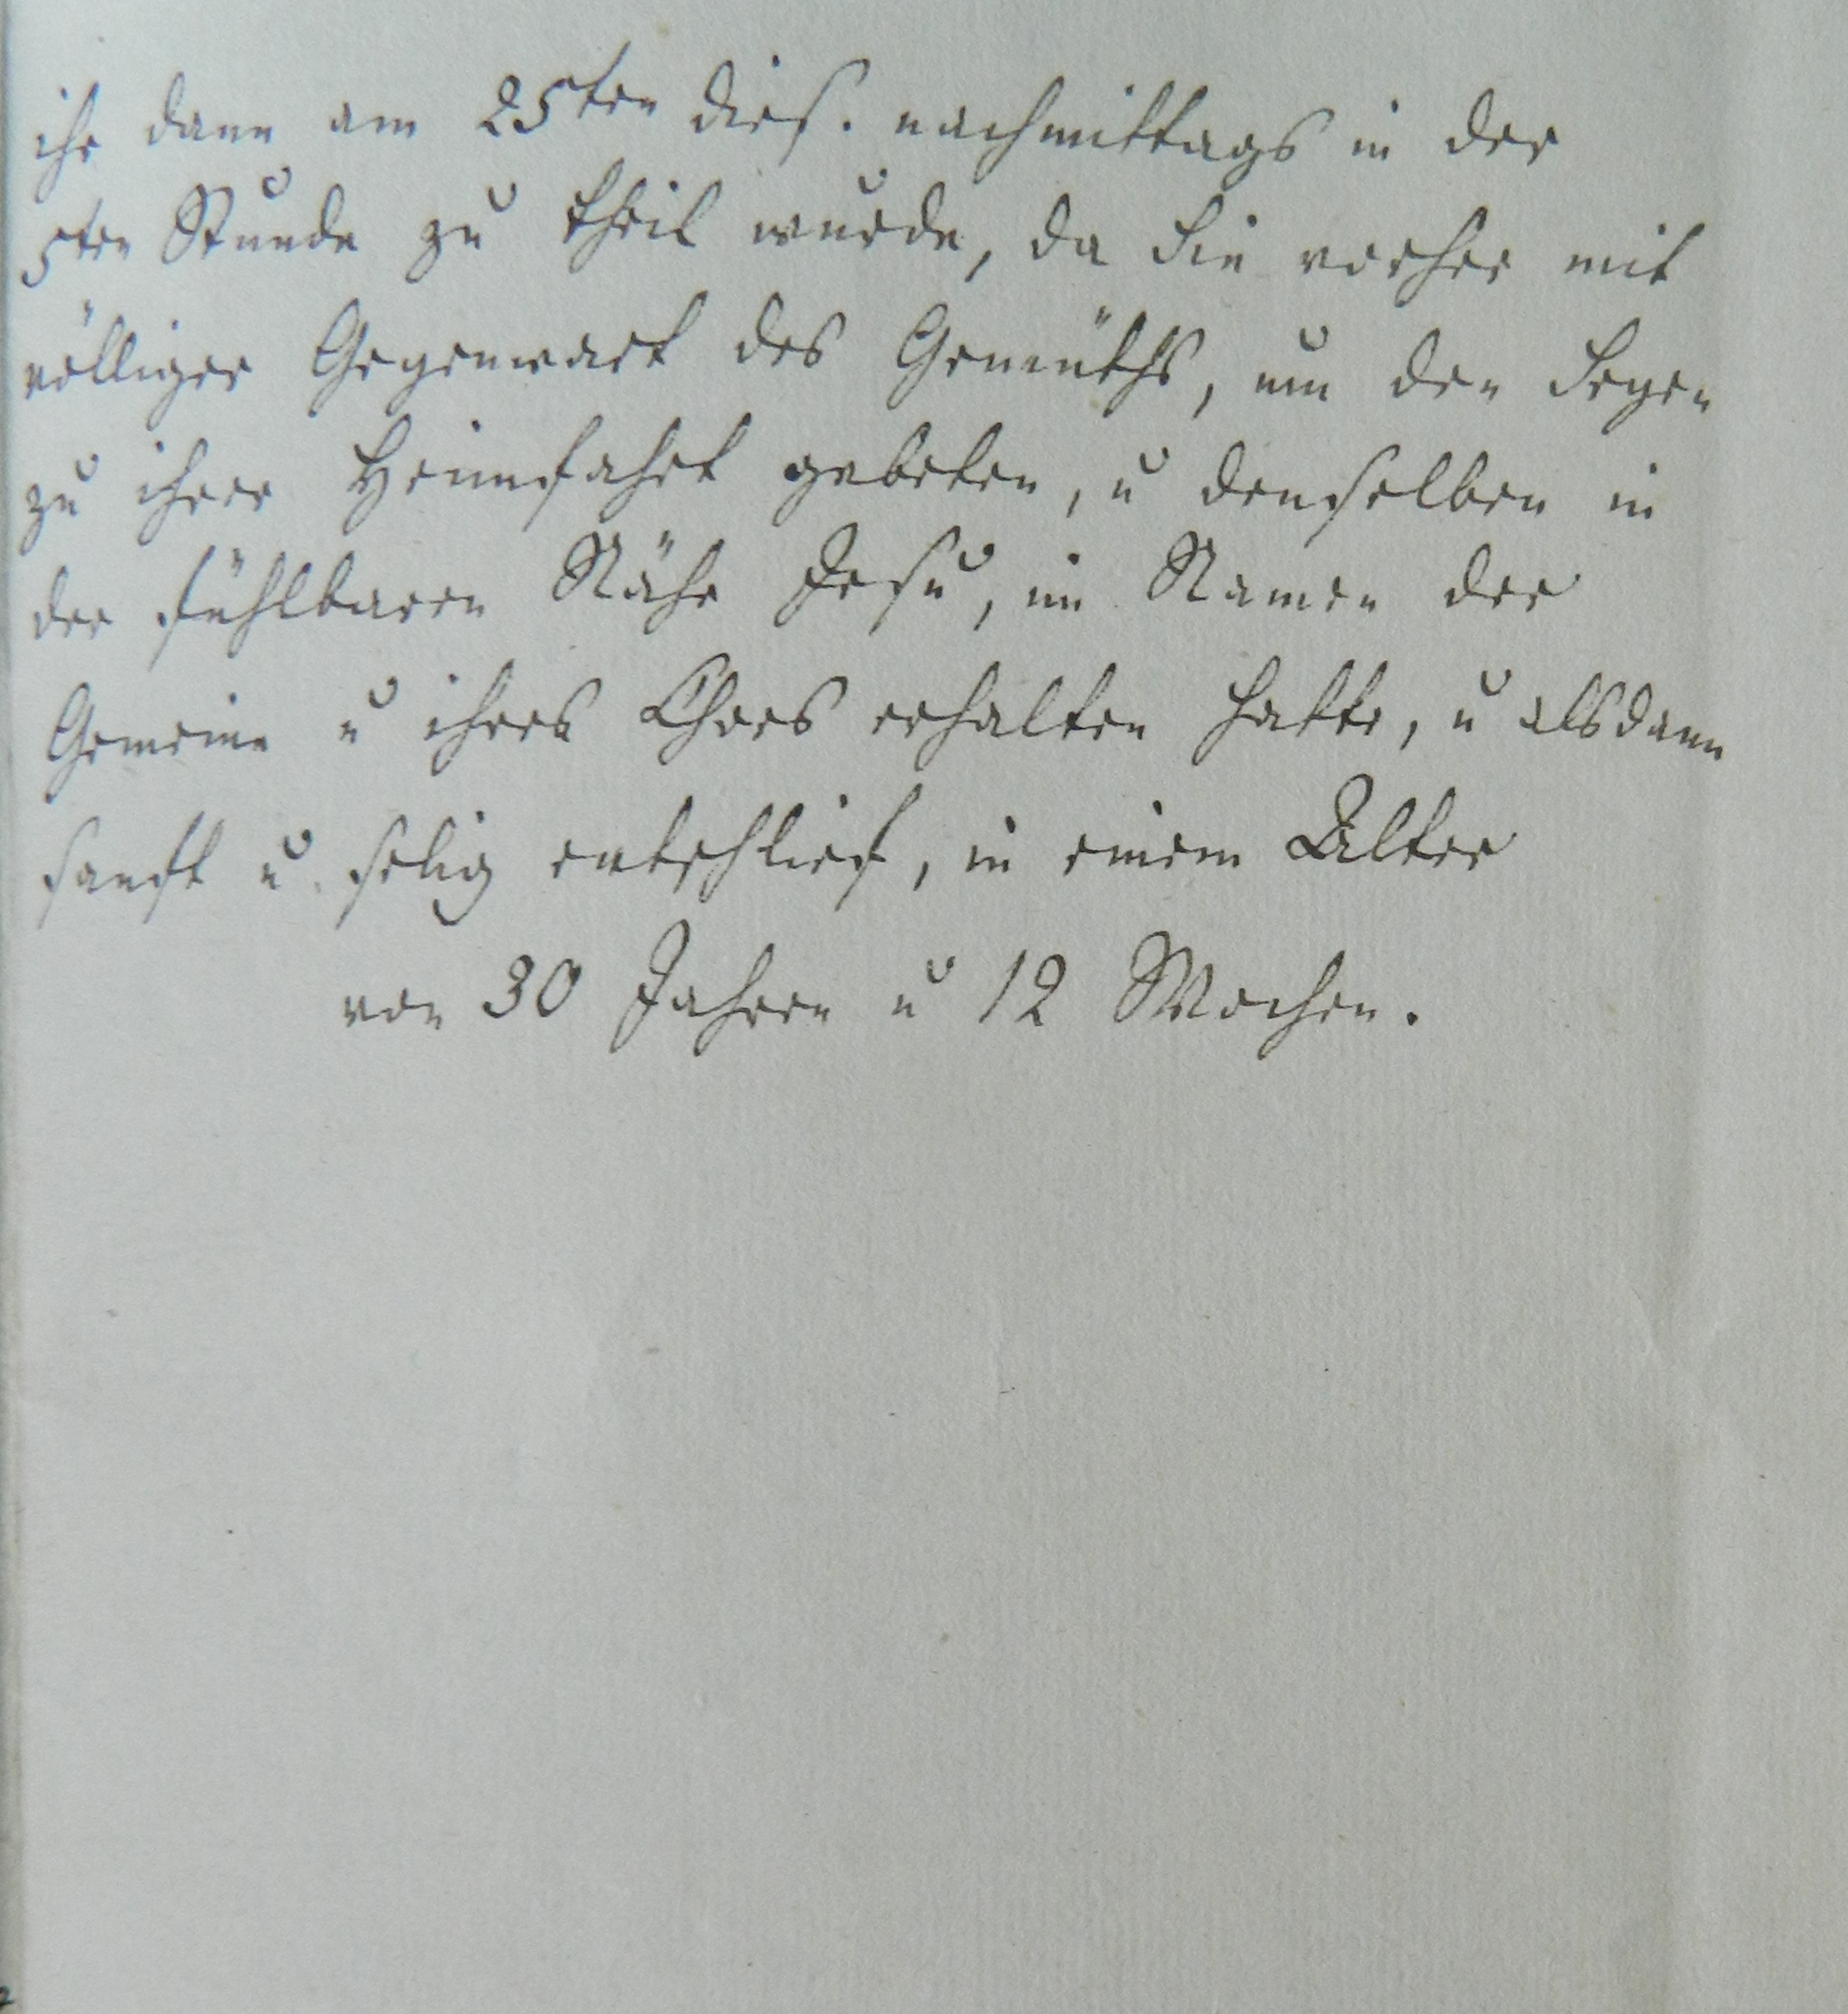 ihr dann am 25ten dies. nachmittags in der
5ten Stunde zu theil wurde, da Sie vorher mit
völliger Gegenwart des Gemüths, um den Segen
zu ihrer Heimfahrt gebeten, u denselben in
der fühlbaren Nähe Jesu, im Namen der
Gemeine u ihres Chors erhalten hatte, u alsdann
sanft u. selig entschlief, in einem Alter
von 30 Jahren u 12 Wochen.